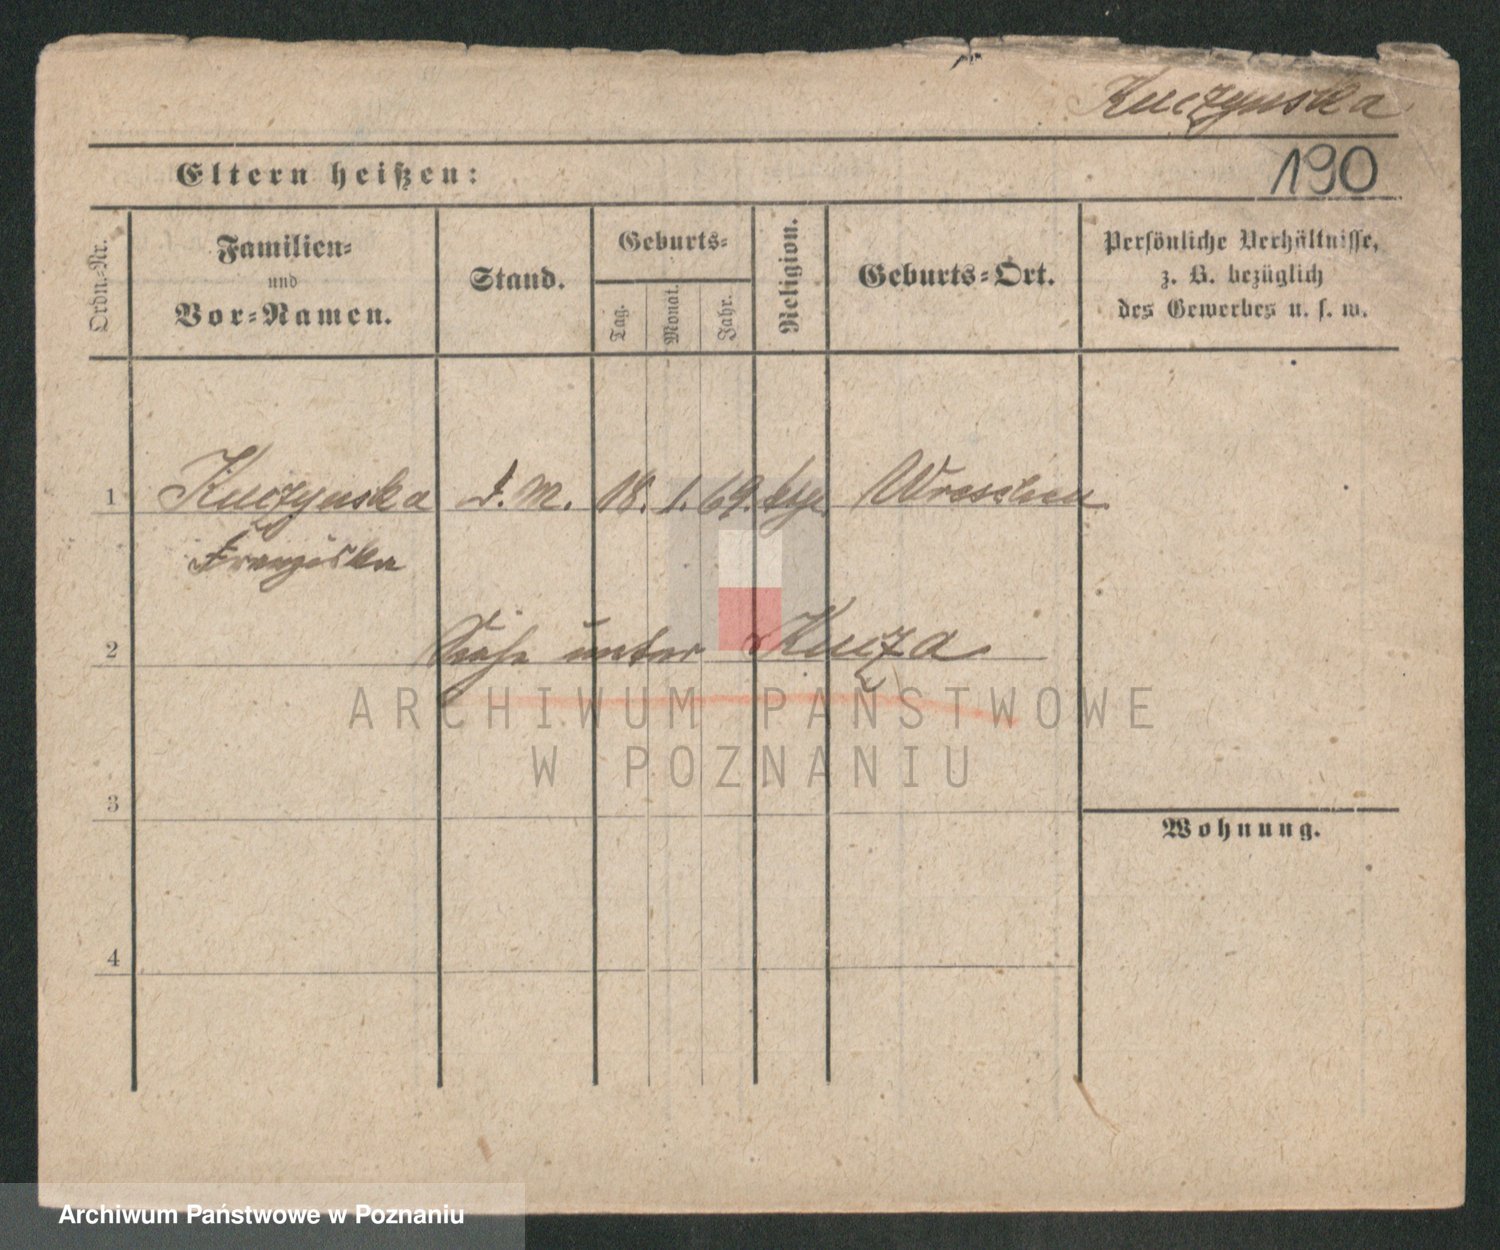 Kuczynska
190
Eltern heißen:
Ordn.-Nr.
Familien-
und
Vor-Namen.
Stand.
Geburts-
Tag.
Monat.
Jahr.
Religion.
Geburts-Ort.
Persönliche Verhältnisse,
z. B. bezüglich
des Gewerbes u. s. w.
1 Kuczynska D. M. 18. 1. 69. Wreschen
Franziska
2 Siehe unter Kucza
ARCHIWUM PAŃSTWOWE
W POZNANIU
3
Wohnung.
4
Archiwum Państwowe w Poznaniu